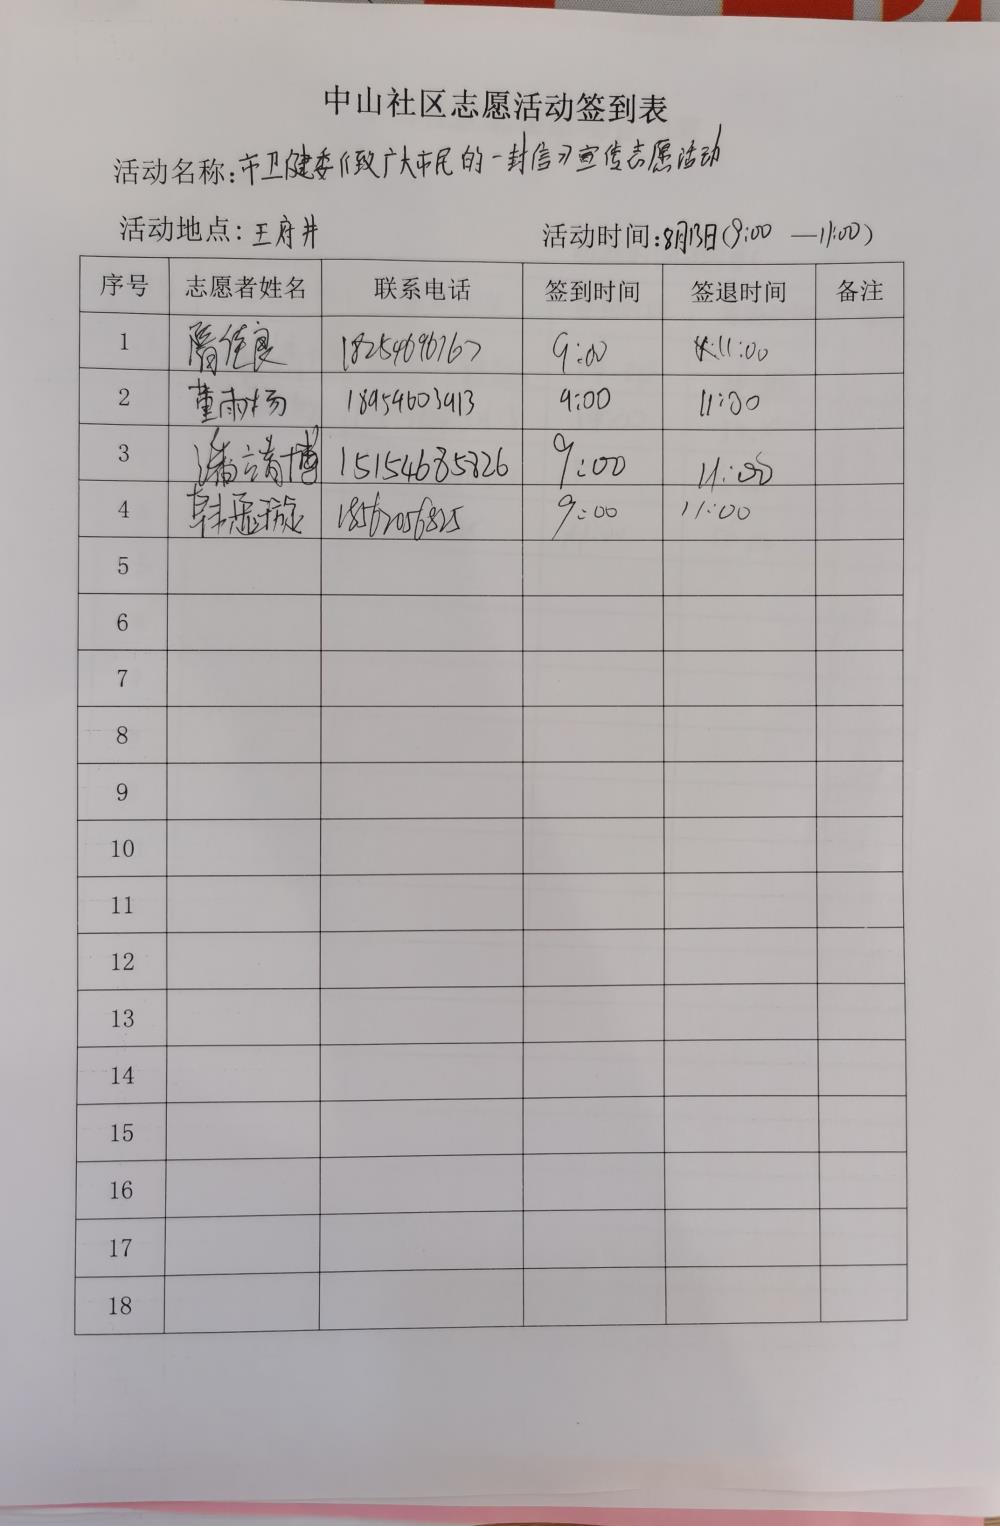 中山社区志愿活动签到表
活动名称:市卫健委《致广大市民的一封信》宣传志愿活动
活动地点:王府井 活动时间:8月13日(9:00 —11:00)
序号 志愿者姓名 联系电话 签到时间 签退时间 备注
1 隋佳良 18254696767 9:00 11:00
2 董雨杨 18954603913 9:00 11:00
3 潘靖博 15154685826 9:00 11:00
4 韩愿璇 18562056825 9:00 11:00
5
6
7
8
9
10
11
12
13
14
15
16
17
18